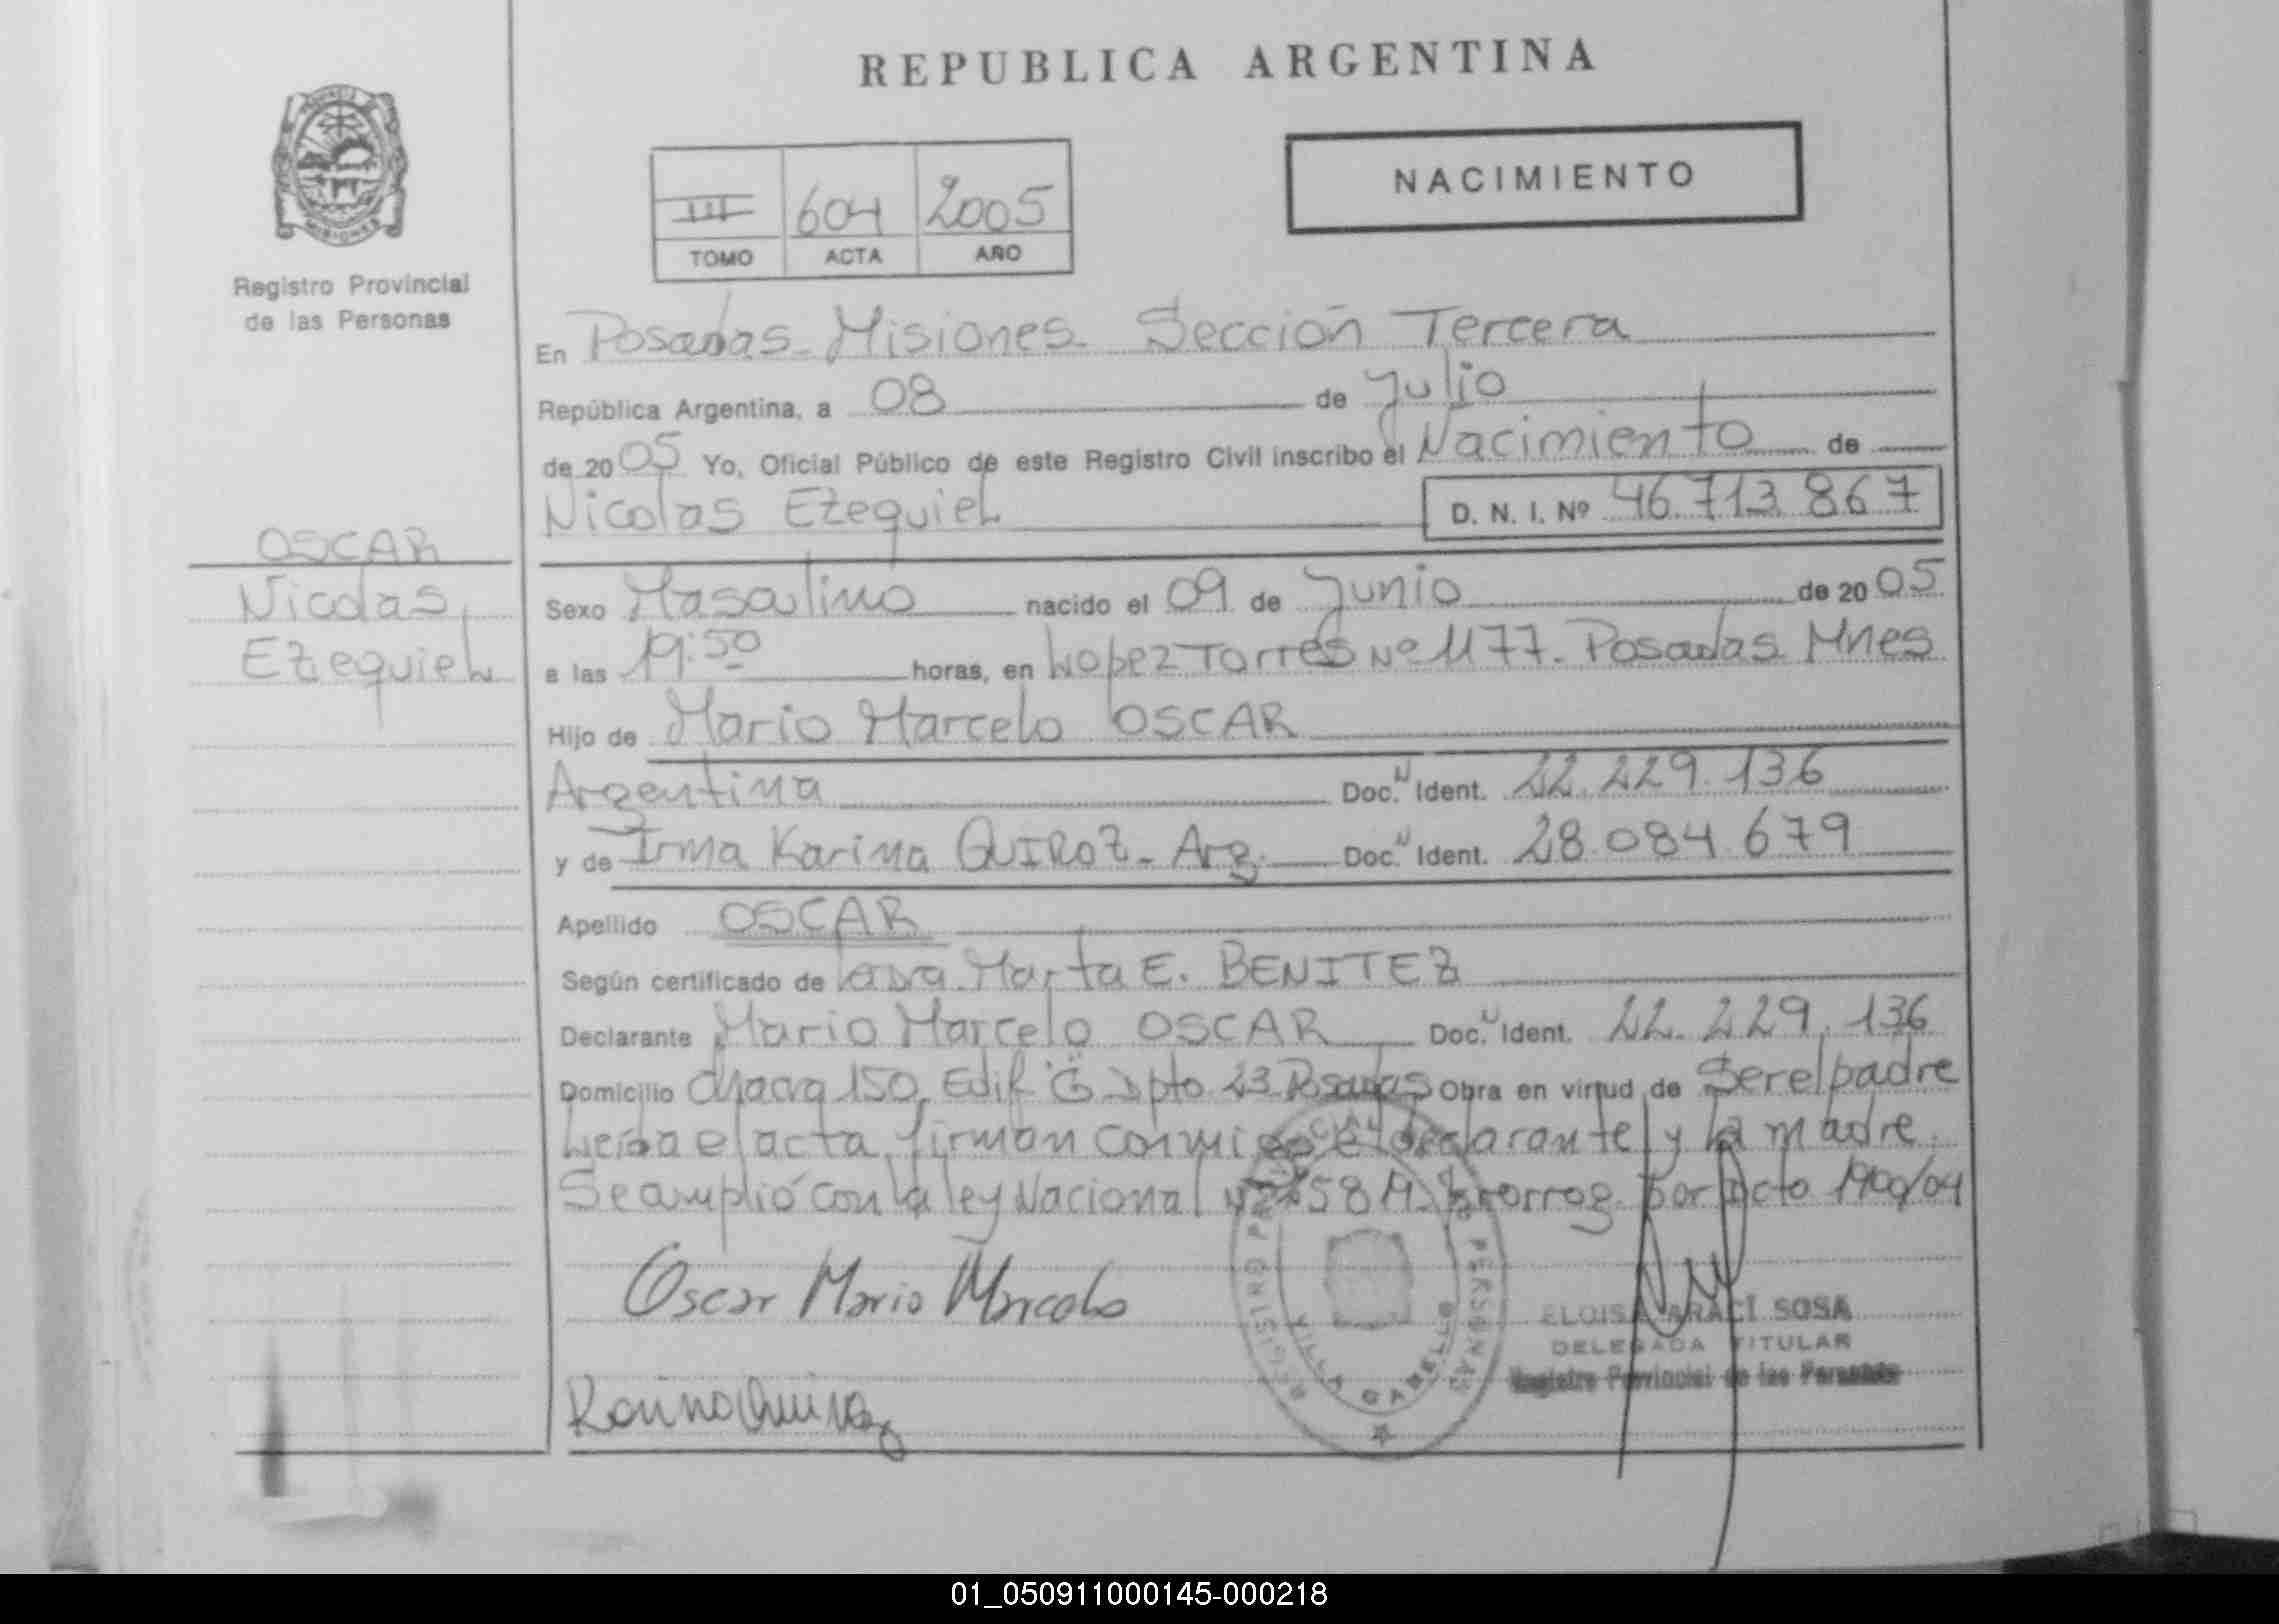 REPUBLICA ARGENTINA
PROVINCIA DE
MISIONES
Registro Provincial
de las Personas
NACIMIENTO
III 604 2005
TOMO ACTA AÑO
En Posadas - Misiones - Sección Tercera
República Argentina, a 08 de Julio
de 2005 Yo, Oficial Público de este Registro Civil inscribo el Nacimiento de
Nicolas Ezequiel D. N. I. Nº 46.713.867
OSCAR
Nicolas
Ezequiel
Sexo Masculino nacido el 09 de Junio de 2005
a las 19:50 horas, en Lopez Torres Nº 1177 - Posadas Mnes
Hijo de Mario Marcelo OSCAR
Argentina Doc. N Ident. 22.229.136
y de Irma Karina QUIROZ - Arg. Doc. N Ident. 28.084.679
Apellido OSCAR
Según certificado de Marta E. BENITEZ
Declarante Mario Marcelo OSCAR Doc. N Ident. 22.229.136
Domicilio Chacra 150, Edif "G" Dpto 23 Posadas Obra en virtud de Ser el padre
Leida el acta, firman conmigo el declarante y la madre.
Se amplió con la ley Nacional prorrog. por Dcto 1900/04
Oscar Mario Marcelo
Karina Quiroz
REGISTRO PROVINCIAL DE LAS PERSONAS
VILLA CABELLO
ELOISA ARACI SOSA
DELEGADA TITULAR
Registro Provincial de las Personas
01_050911000145-000218